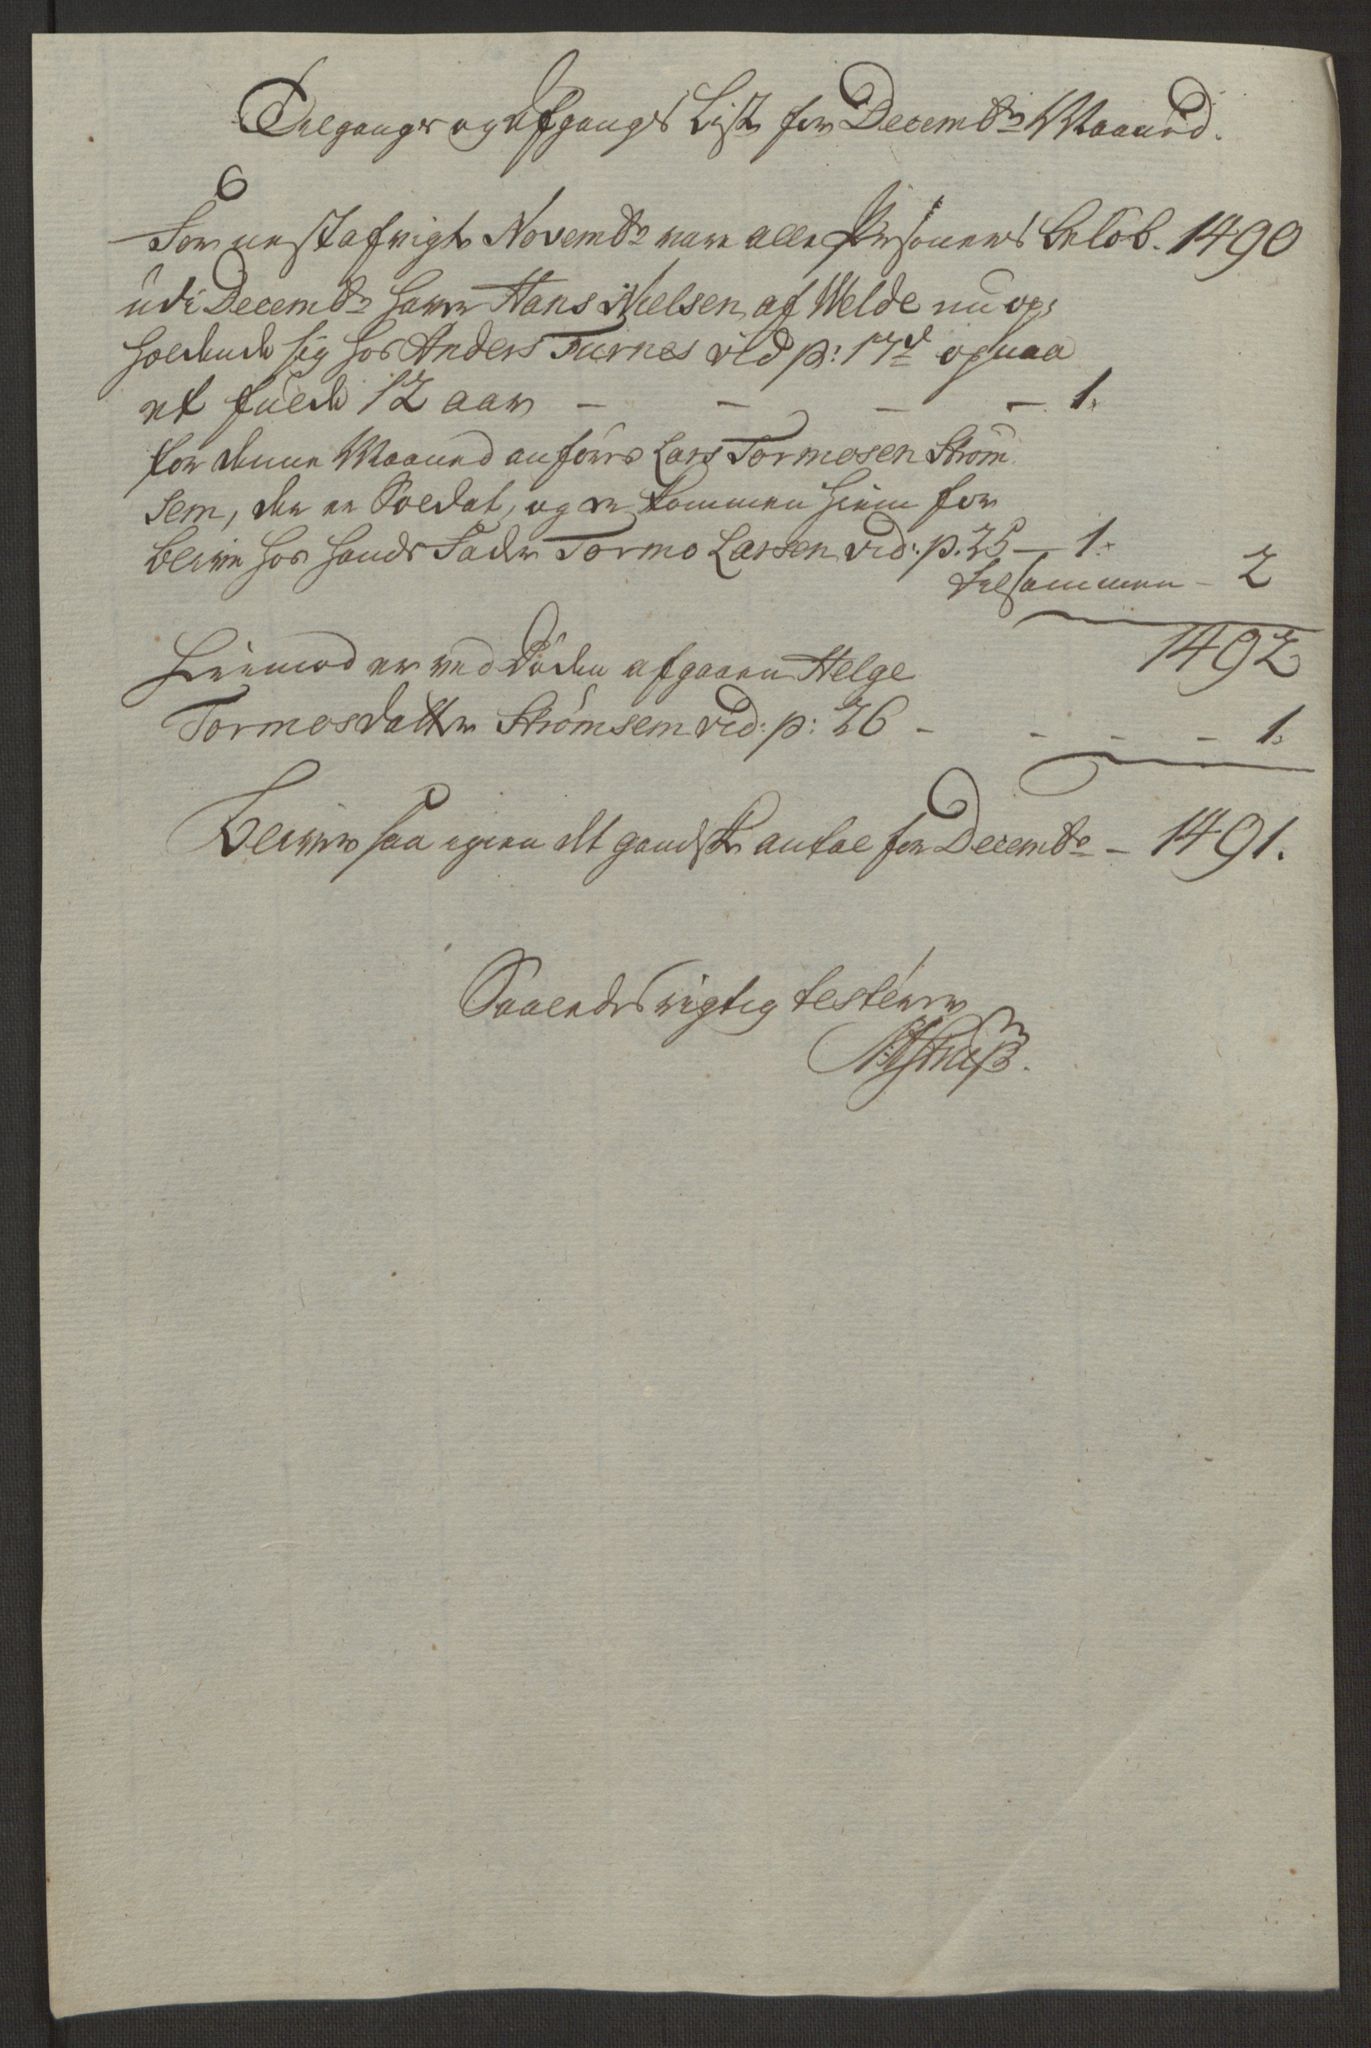 Tilgangs og afgangs List for Decembr Maaned.
For nestafvigte Novembr vare alle Personers belöb. 1490
udi Decembr haver Hans Nielsen af Welde nu op-
holdende sig hos Anders Furnes vid p: 17de opnaaet
et fulde 12 aar - - - - 1.
for denne Maaned anföres Lars Tormosen Ström
sem, der er Soldat, og er kommen hiem for
blive hos hands Fader Tormo Larsen vid: p. 25 - 1.
tilsammen - 2
1492
Hierimod er ved Döden afgaaen Helge
Tormosdatter Strömsem vid: p: 26 - - - - 1.
Bliver saa igien det gandske antal for Decembr - 1491.
Saaledes rigtig testerer